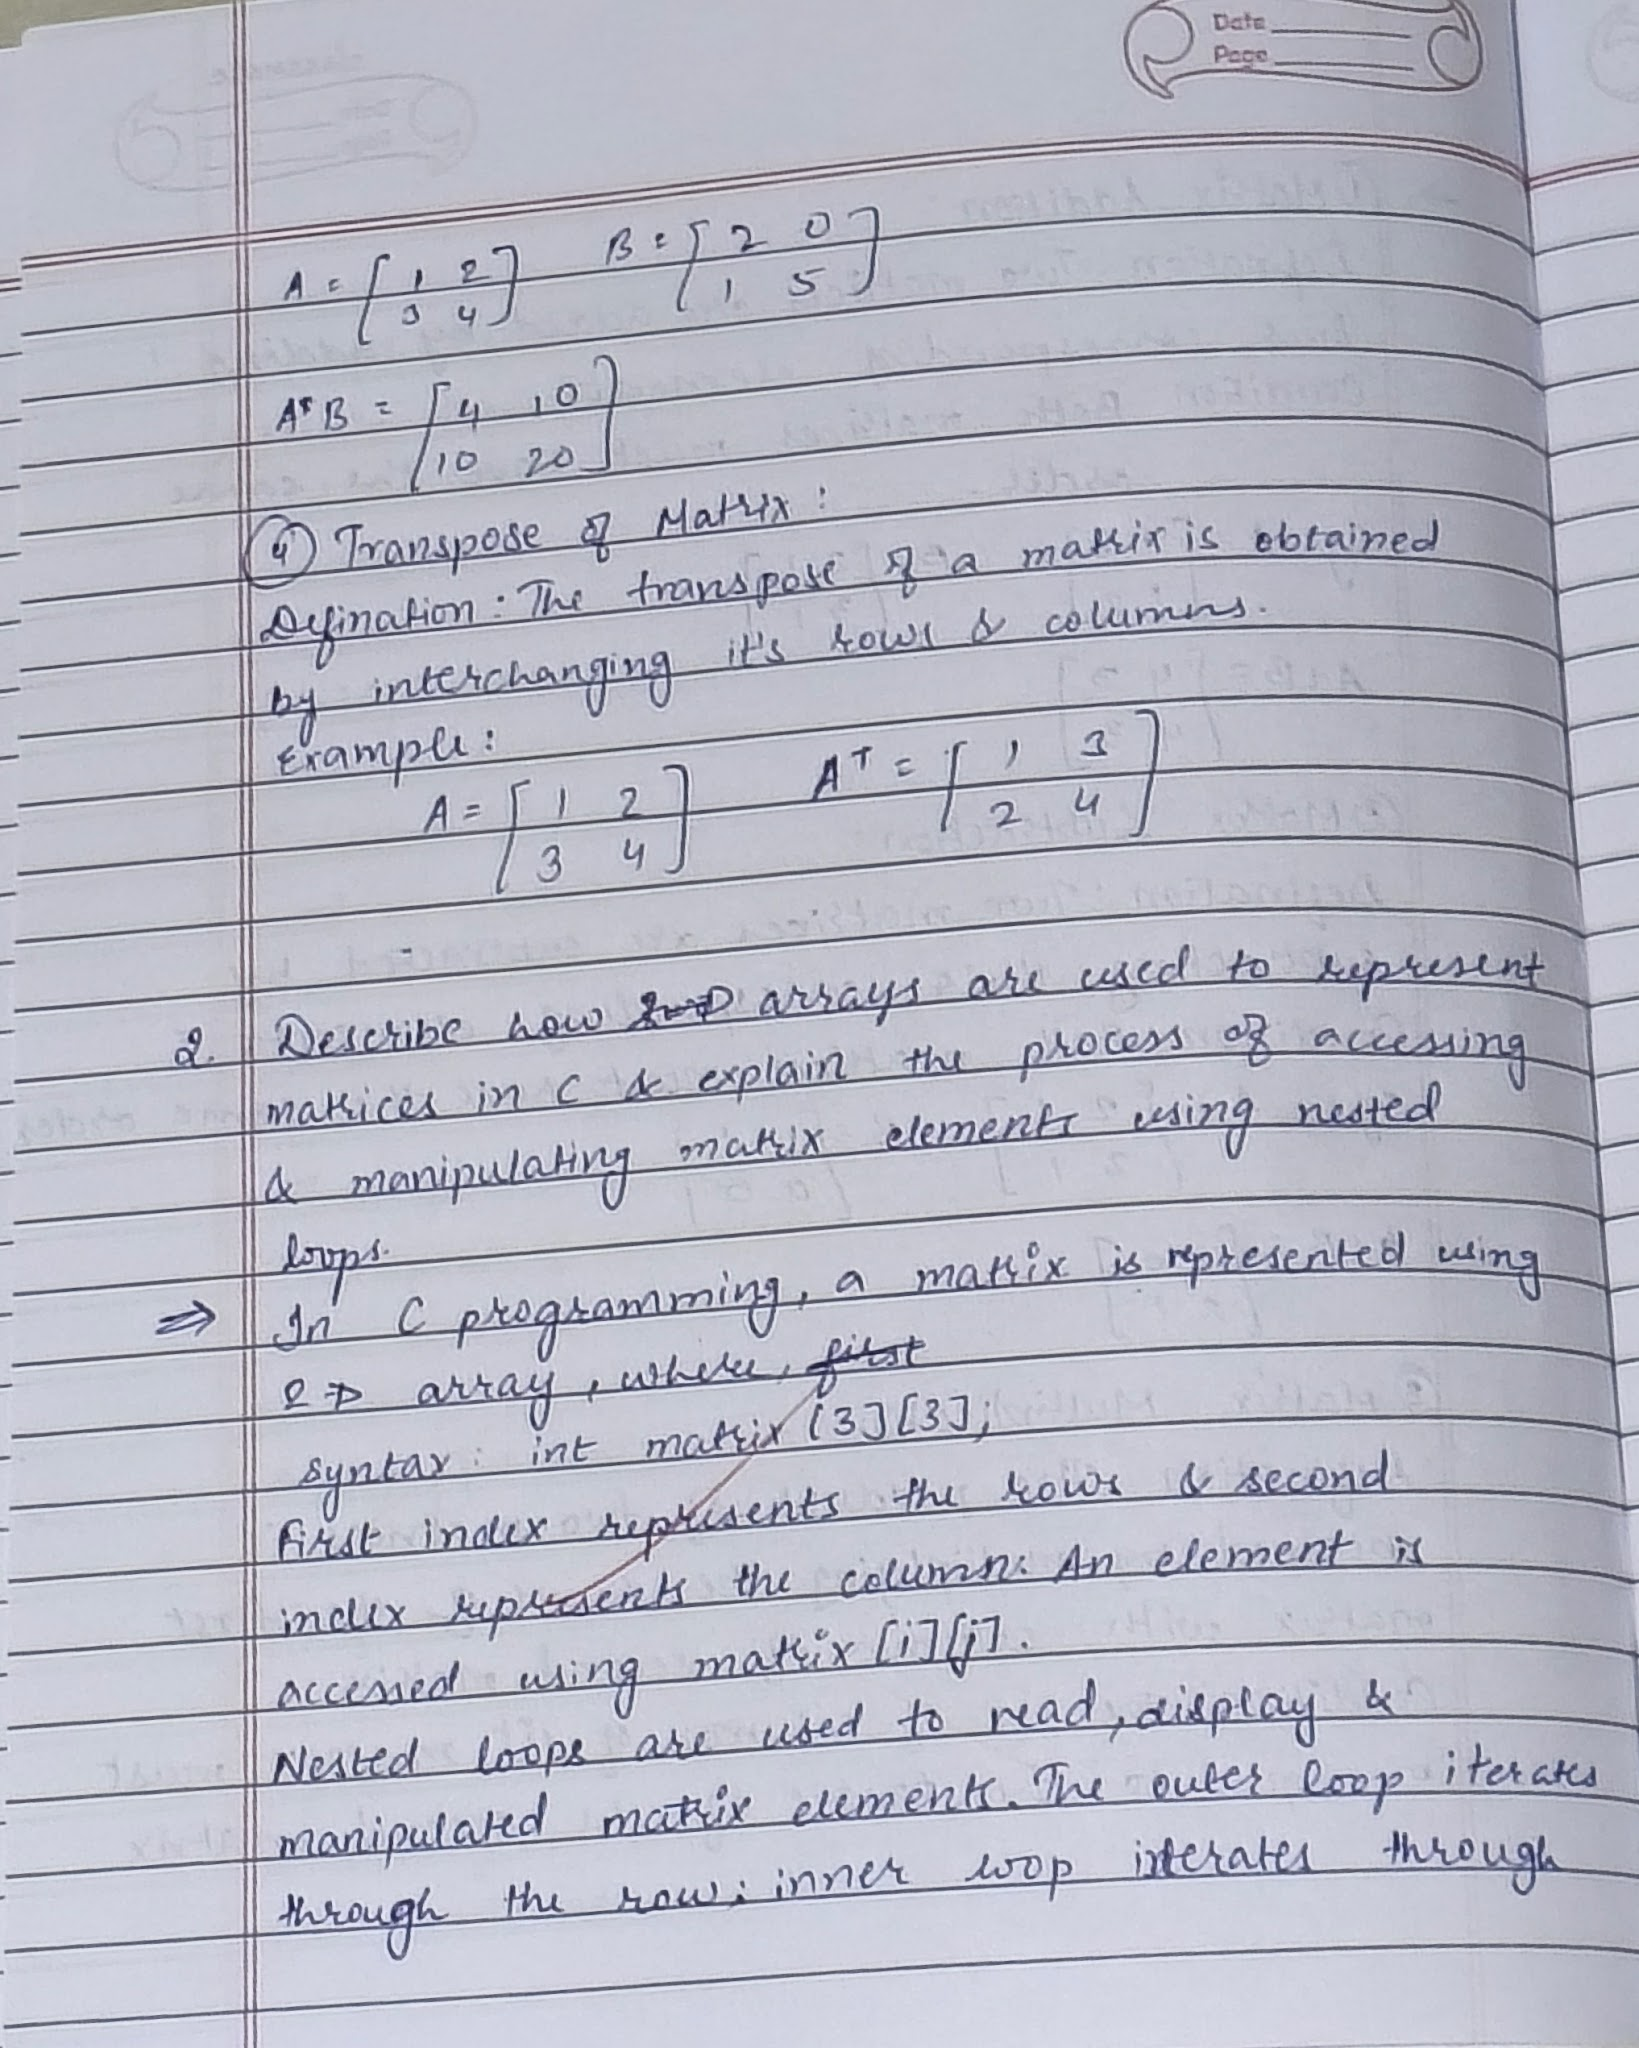 Date
Page
A = [ 1 2   B = [ 2 0
3 4 ]   1 5 ]
A*B = [ 4 10
10 20 ]
(4) Transpose of Matrix :
Defination : The transpose of a matrix is obtained
by interchanging it's rows & columns.
Example :
A = [ 1 2   A^T = [ 1 3
3 4 ]   2 4 ]
2. Describe how 2-D arrays are used to represent
matrices in C & explain the process of accessing
& manipulating matrix elements using nested
loops.
⇒ In C programming, a matrix is represented using
2D array, where, first
syntax : int matrix [3][3];
First index represents the rows & second
index represents the column. An element is
accessed using matrix [i][j].
Nested loops are used to read, display &
manipulated matrix elements. The outer loop iterates
through the row; inner loop interates through